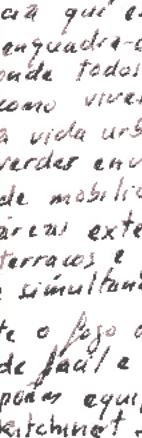 cia qui e
enquadra-
onde todos
como vive
a vida urb
verdes env
de mobili
áreas exte
terraços e
simultan
te o fogo
de fácil e
porm equi
kitchinet